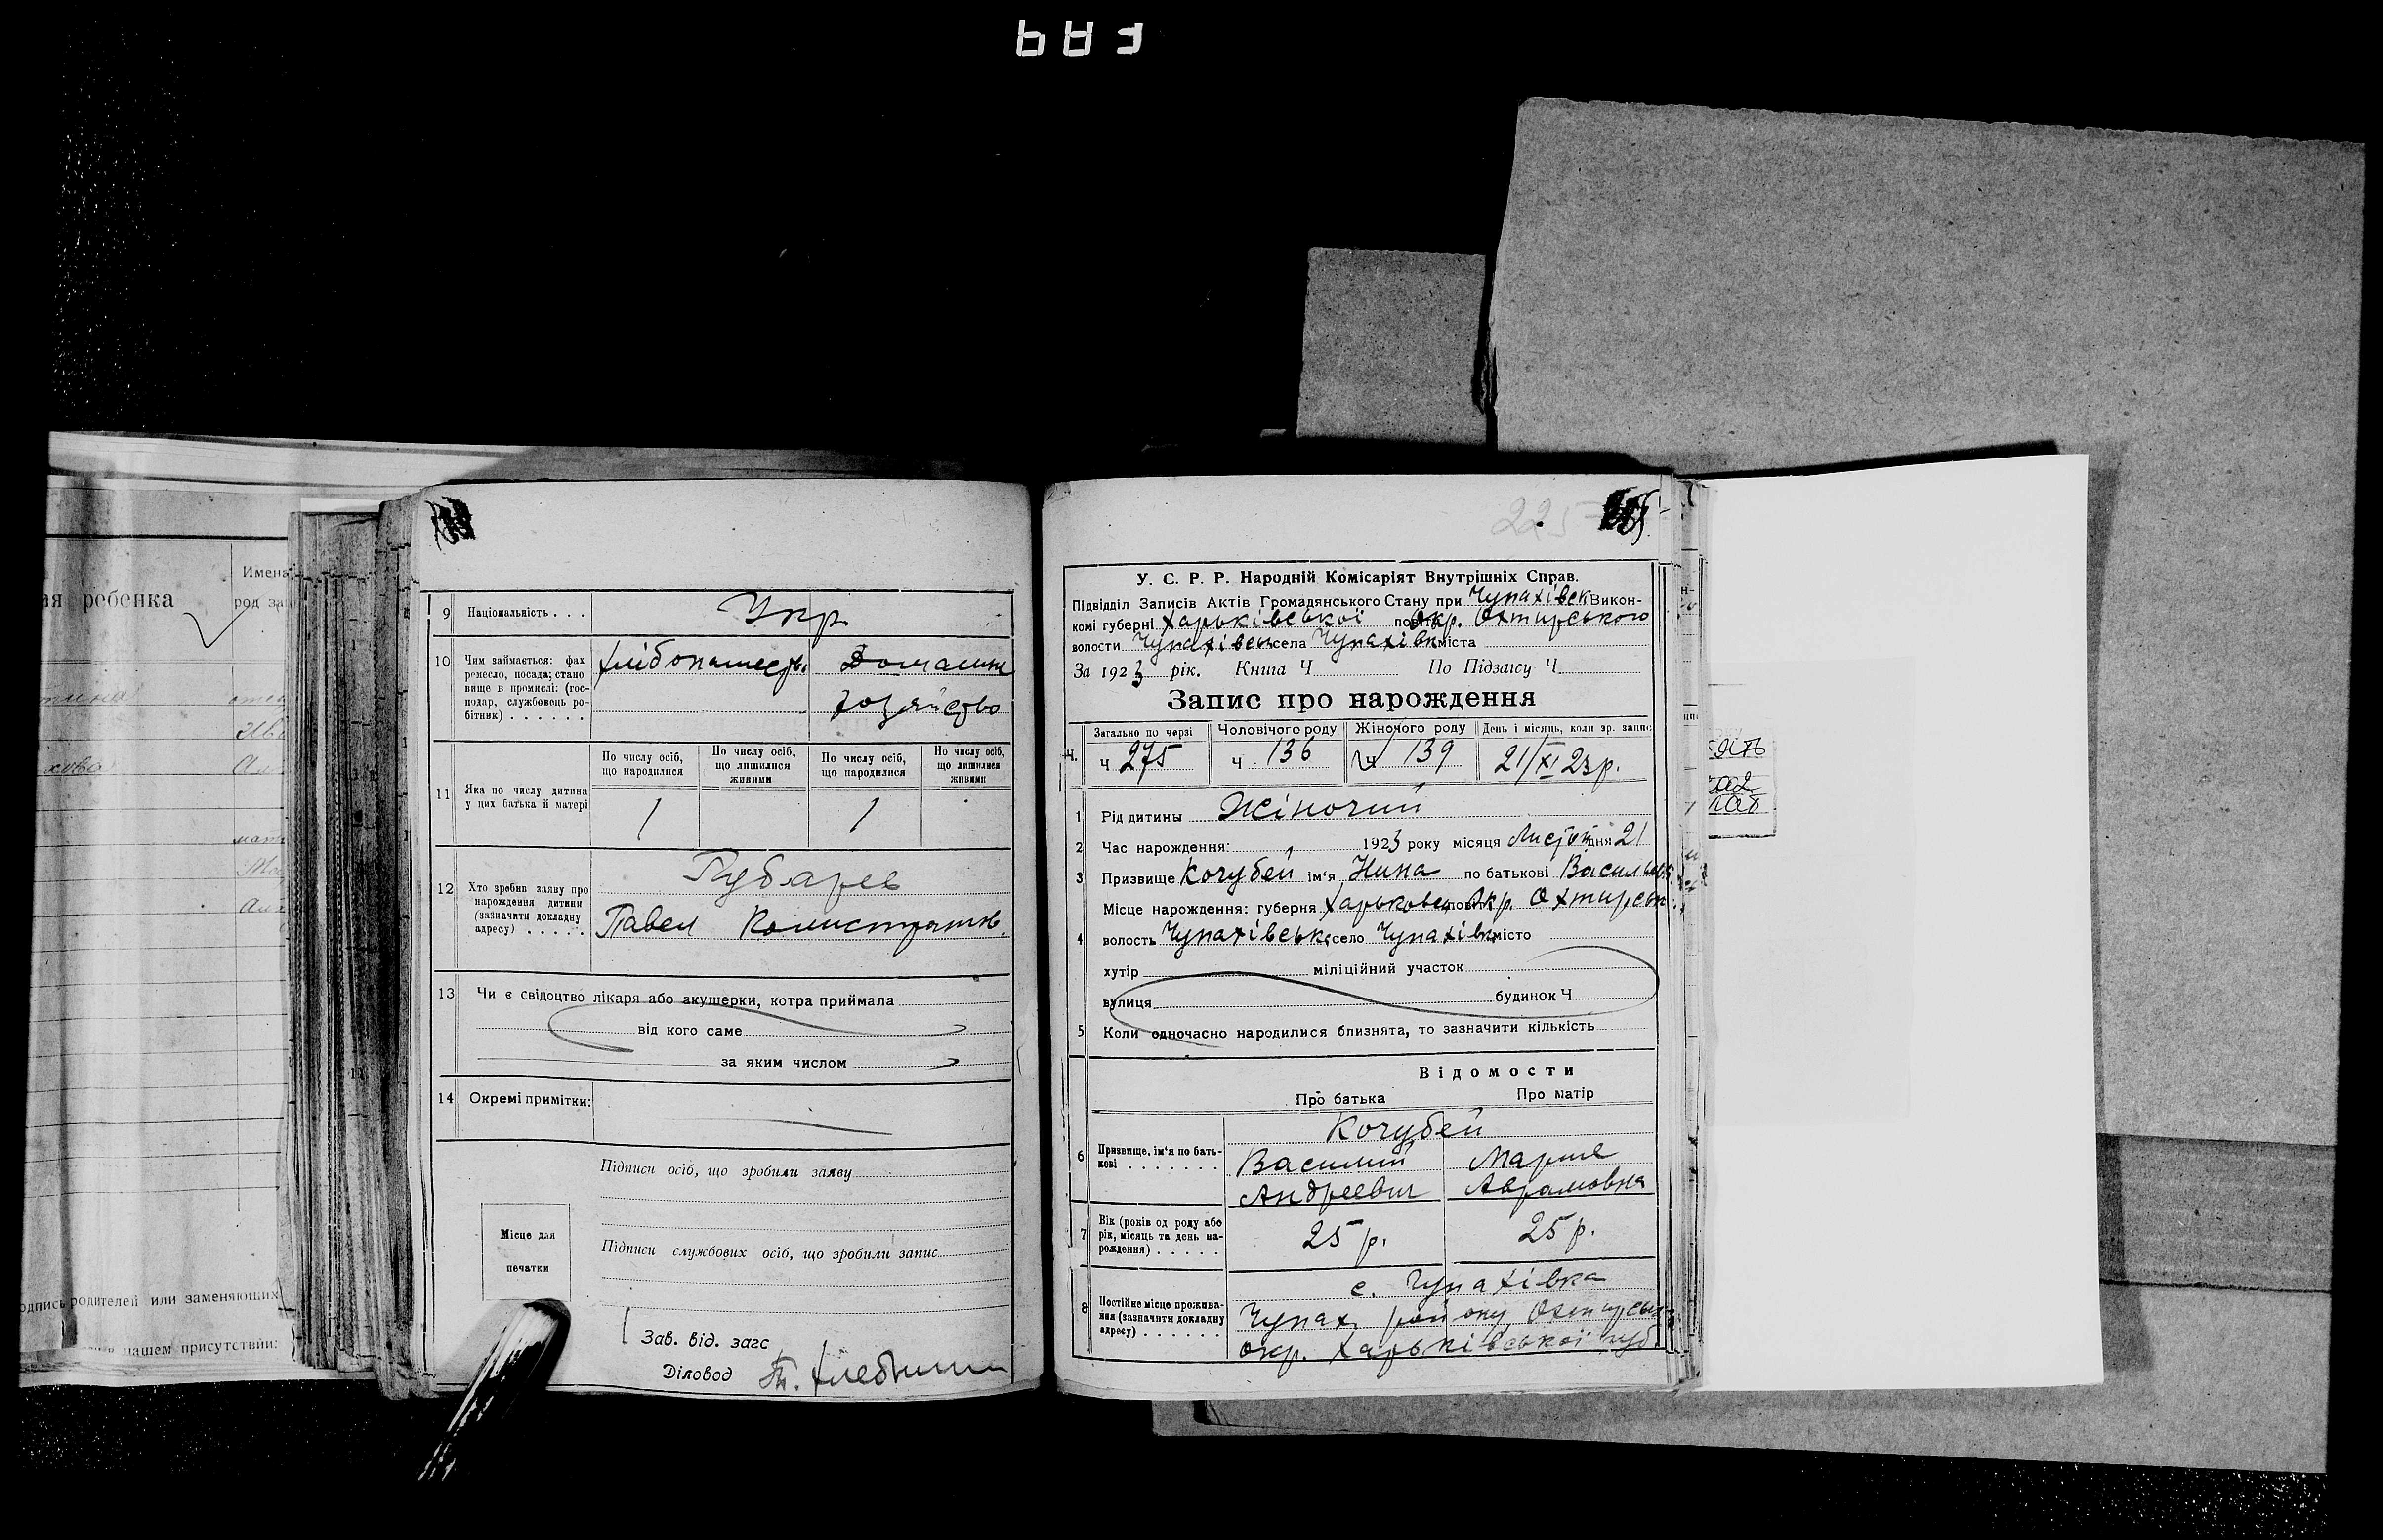 У. С. Р. Р. Народній Комісаріят Внутрішніх Справ.
Підвідділ Записів Актів Громадянського Стану при Чупахівськ Викон-
комі губерні Харьківської повіт Окр. Охтирського
волости Чупахівськ села Чупахівк міста
За 1923 рік. Книга Ч По Підзагсу Ч
Запис про народження
Загально по черзі Чоловічого роду Жіночого роду День і місяць, коли зр. запис
Ч. ч 275 ч 136 ч 139 21/XI 23 р.
1 Рід дитини Жіночий
2 Час нарождення: 1923 року місяця Листоп дня 21
3 Призвище Кочубей ім'я Нина по батькові Васильев
4 Місце нарождення: губерня Харьковськ повіт Окр. Охтирськ.
волость Чупахівськ село Чупахівк місто
хутір міліційний участок
вулиця будинок Ч
5 Коли одночасно народилися близнята, то зазначити кількість
Відомости
Про батька Про матір
6 Призвище, ім'я по бать-
кові
Кочубей
Василий Мария
Андреевич Аврамовна
7 Вік (років од роду або
рік, місяць та день на-
рождення)
25 р. 25 р.
8 Постійне місце прожива-
ння (зазначити докладну
адресу)
с. Чупахівка
Чупах. району Охтирськ
окр. Харьківської губ.
9 Національність . . . Укр.
10 Чим займається: фах
ремесло, посада; стано
вище в промислі: (гос-
подар, службовець ро-
бітник)
Хлібопашеств. Домашне
хозяйство
11 Яка по числу дитина
у цих батька й матері
По числу осіб,
що народилися
По числу осіб,
що лишилися
живими
По числу осіб,
що народилися
По числу осіб,
що лишилися
живими
1 1
12 Хто зробив заяву про
нарождення дитини
(зазначити докладну
адресу)
Губарев
Павел
13 Чи є свідоцтво лікаря або акушерки, котра приймала
від кого саме
за яким числом
14 Окремі примітки:
Підписи осіб, що зробили заяву
Підписи службових осіб, що зробили запис
Місце для
печатки
Зав. від. загс
Діловод
ребенка
Имена
род за
родителей или заменяющих
нашем присутствии:
225